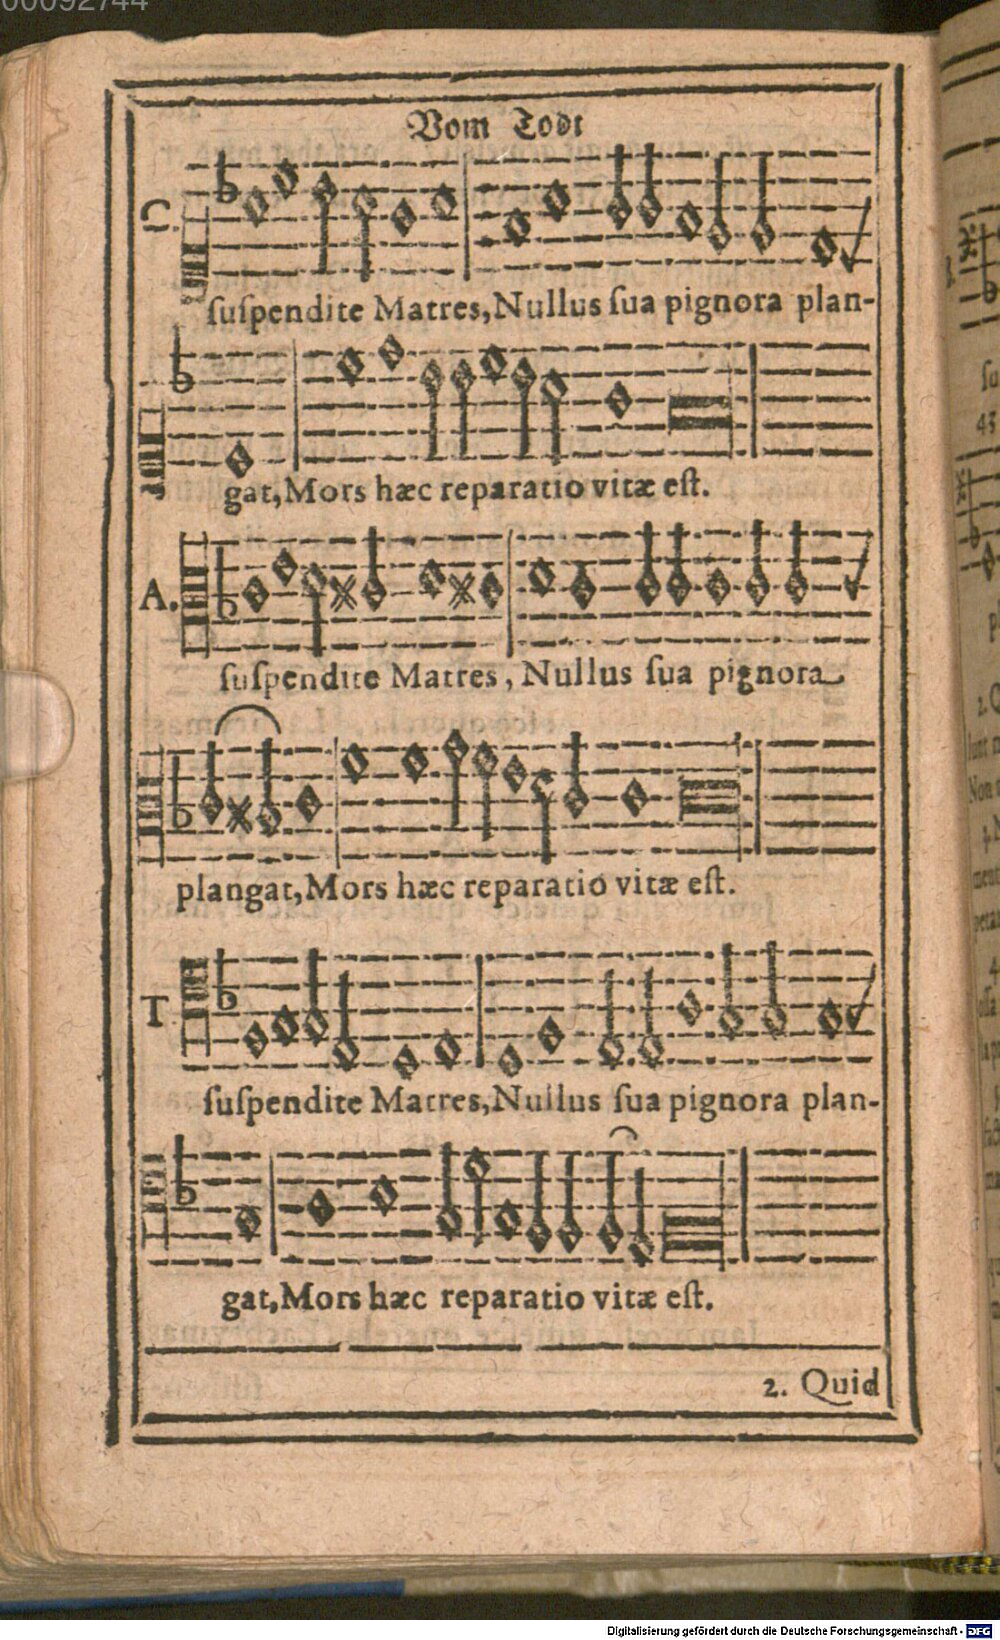 00092744
Vom Todt
C.
ſuſpendite Matres, Nullus ſua pignora plan-
gat, Mors hæc reparatio vitæ eſt.
A.
ſuſpendite Matres, Nullus ſua pignora
plangat, Mors hæc reparatio vitæ eſt.
T
ſuſpendite Matres, Nullus ſua pignora plan-
gat, Mors hæc reparatio vitæ eſt.
2. Quid
Digitalisierung gefördert durch die Deutsche Forschungsgemeinschaft - DFG